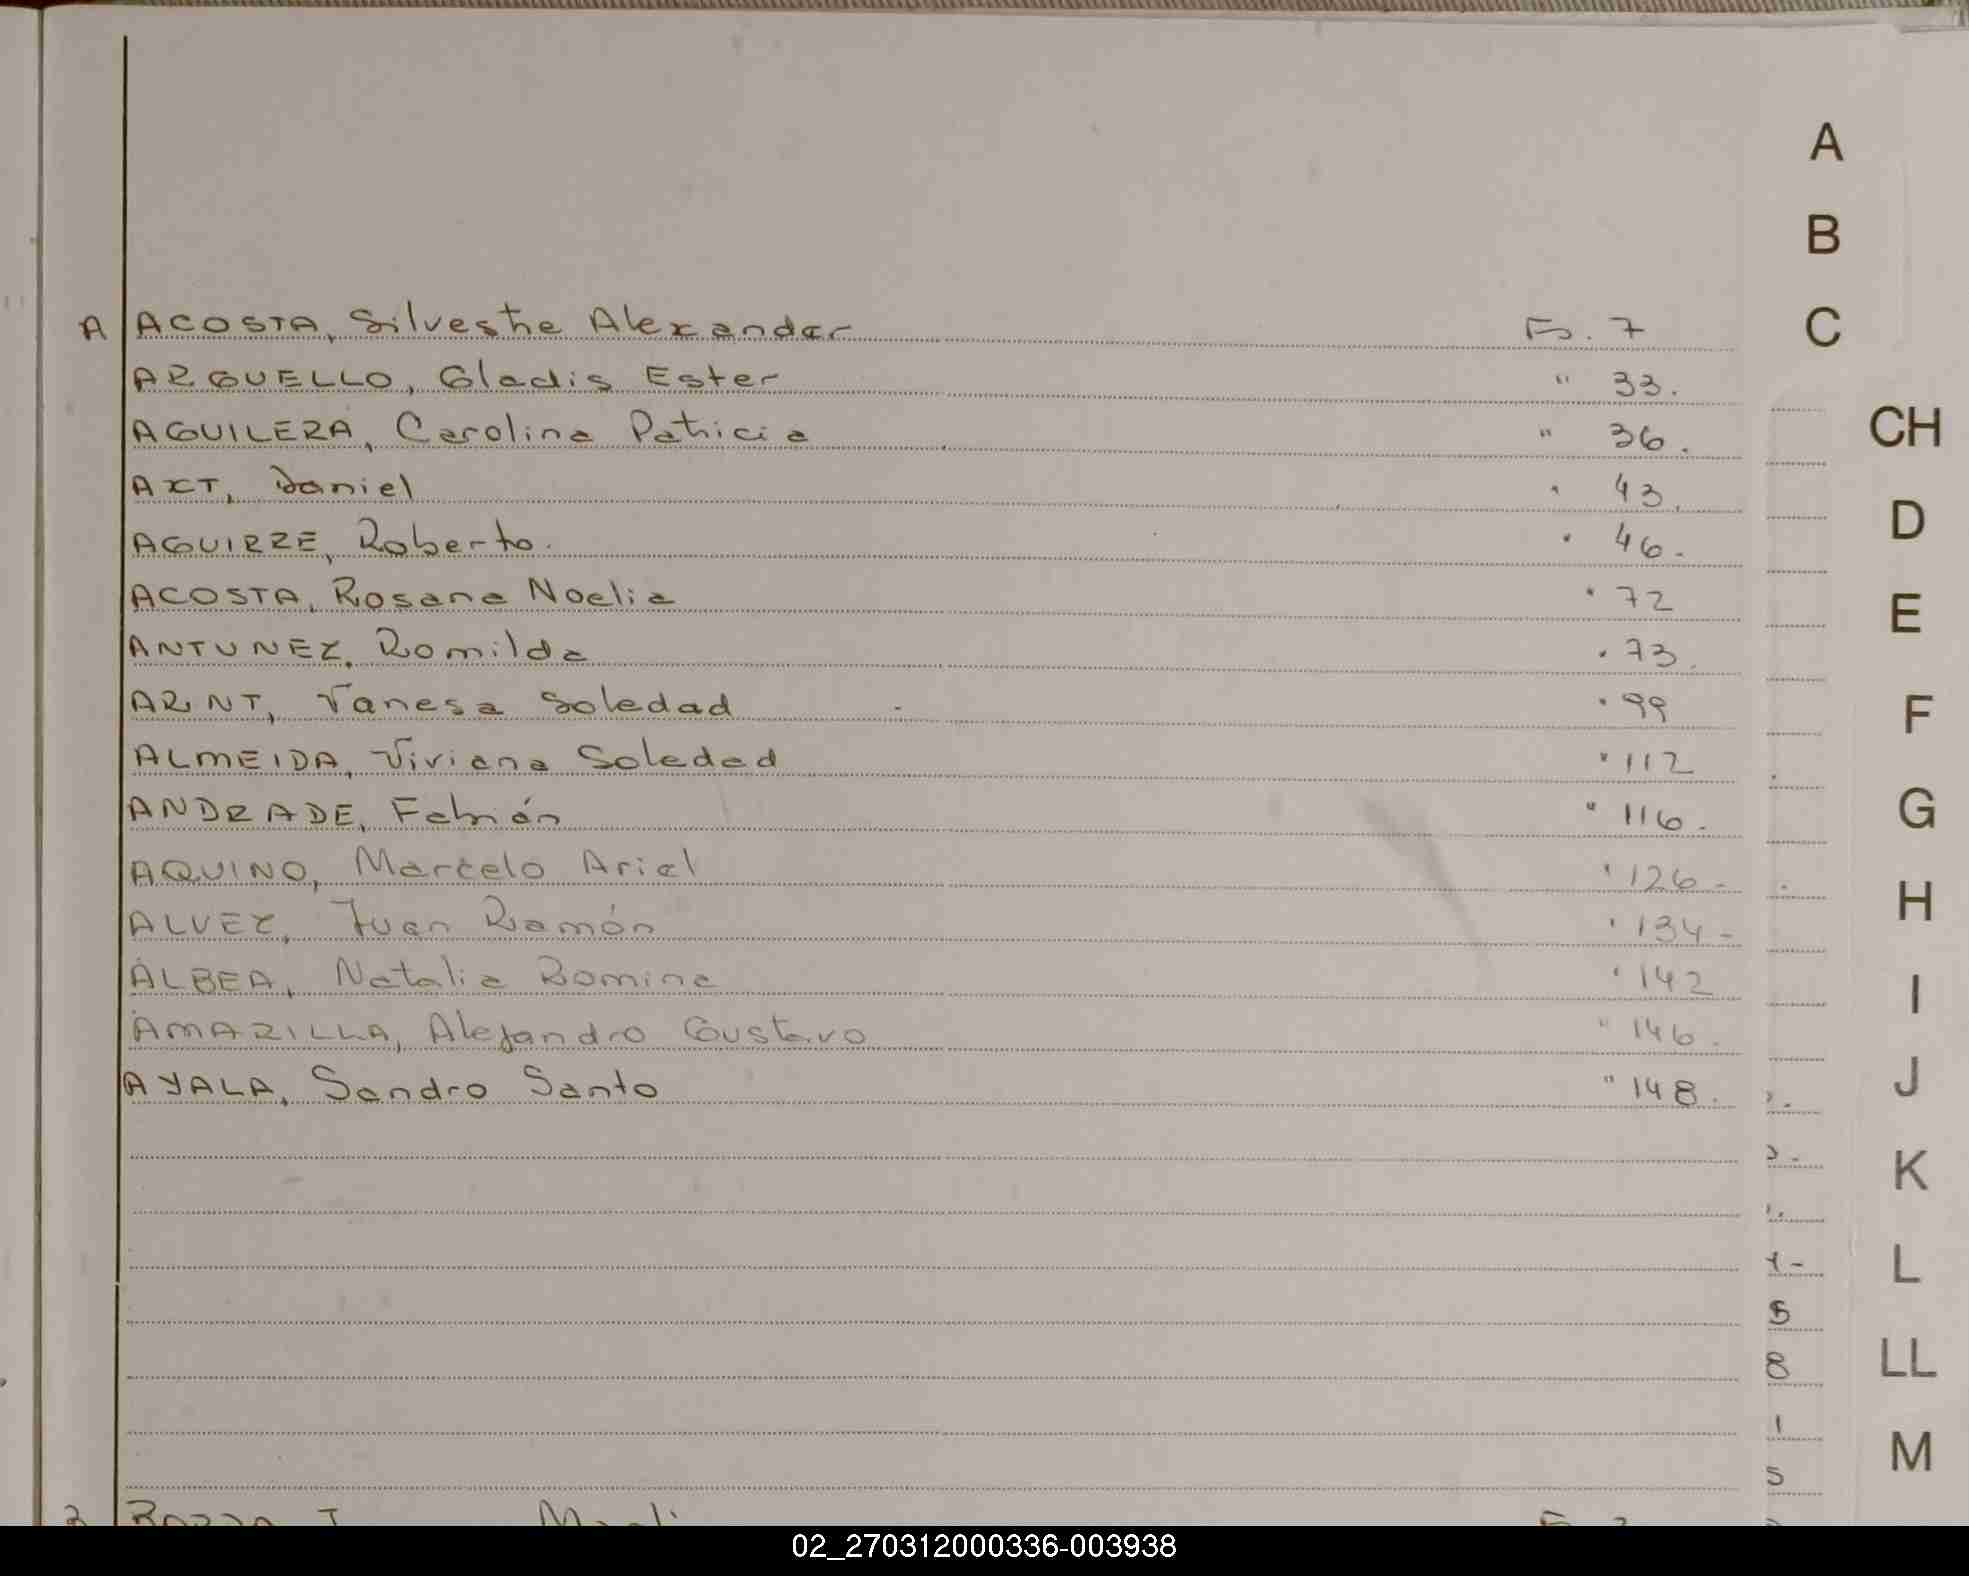 A ACOSTA, Silvestre Alexander Fs. 7
ARGUELLO, Gladis Ester " 33.
AGUILERA, Carolina Patricia " 36.
AXT, Daniel " 43.
AGUIRRE, Roberto. " 46.
ACOSTA, Rosana Noelia " 72
ANTUNEZ, Romilda " 73.
ARNT, Vanesa Soledad " 99
ALMEIDA, Viviana Soledad " 112
ANDRADE, Fabián " 116.
AQUINO, Marcelo Ariel " 126-
ALVEZ, Juan Ramón " 134-
ALBEA, Natalia Romina " 142
AMARILLA, Alejandro Gustavo " 146.
AYALA, Sandro Santo " 148.
A
B
C
CH
D
E
F
G
H
I
J
K
L
LL
M
5
8
1
5
02_270312000336-003938